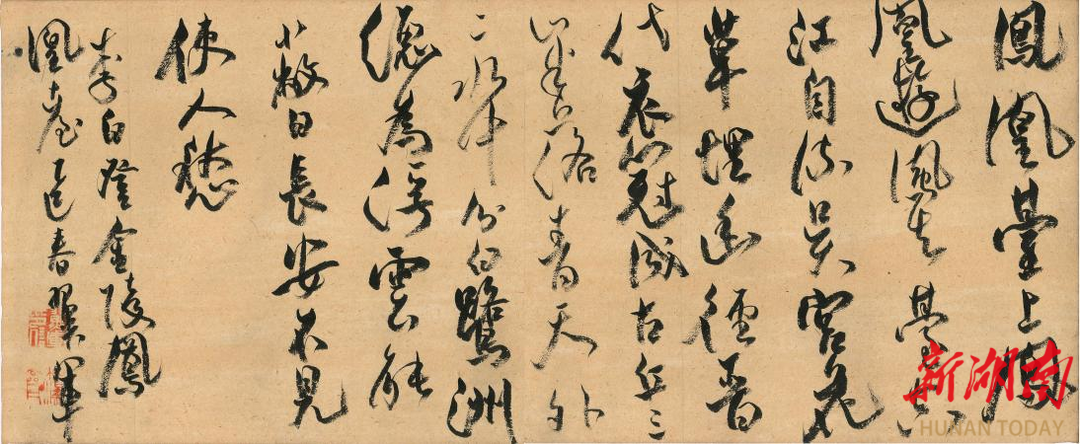 鳳凰臺上鳳
凰遊鳳去臺空
江自流吳宮花
草埋幽徑晉
代衣冠成古丘三
山半落青天外
二水中分白鷺洲
總為浮雲能
蔽日長安不見
使人愁
李白登金陵鳳
凰臺乙巳春翼軍
新湖南
HUNAN TODAY